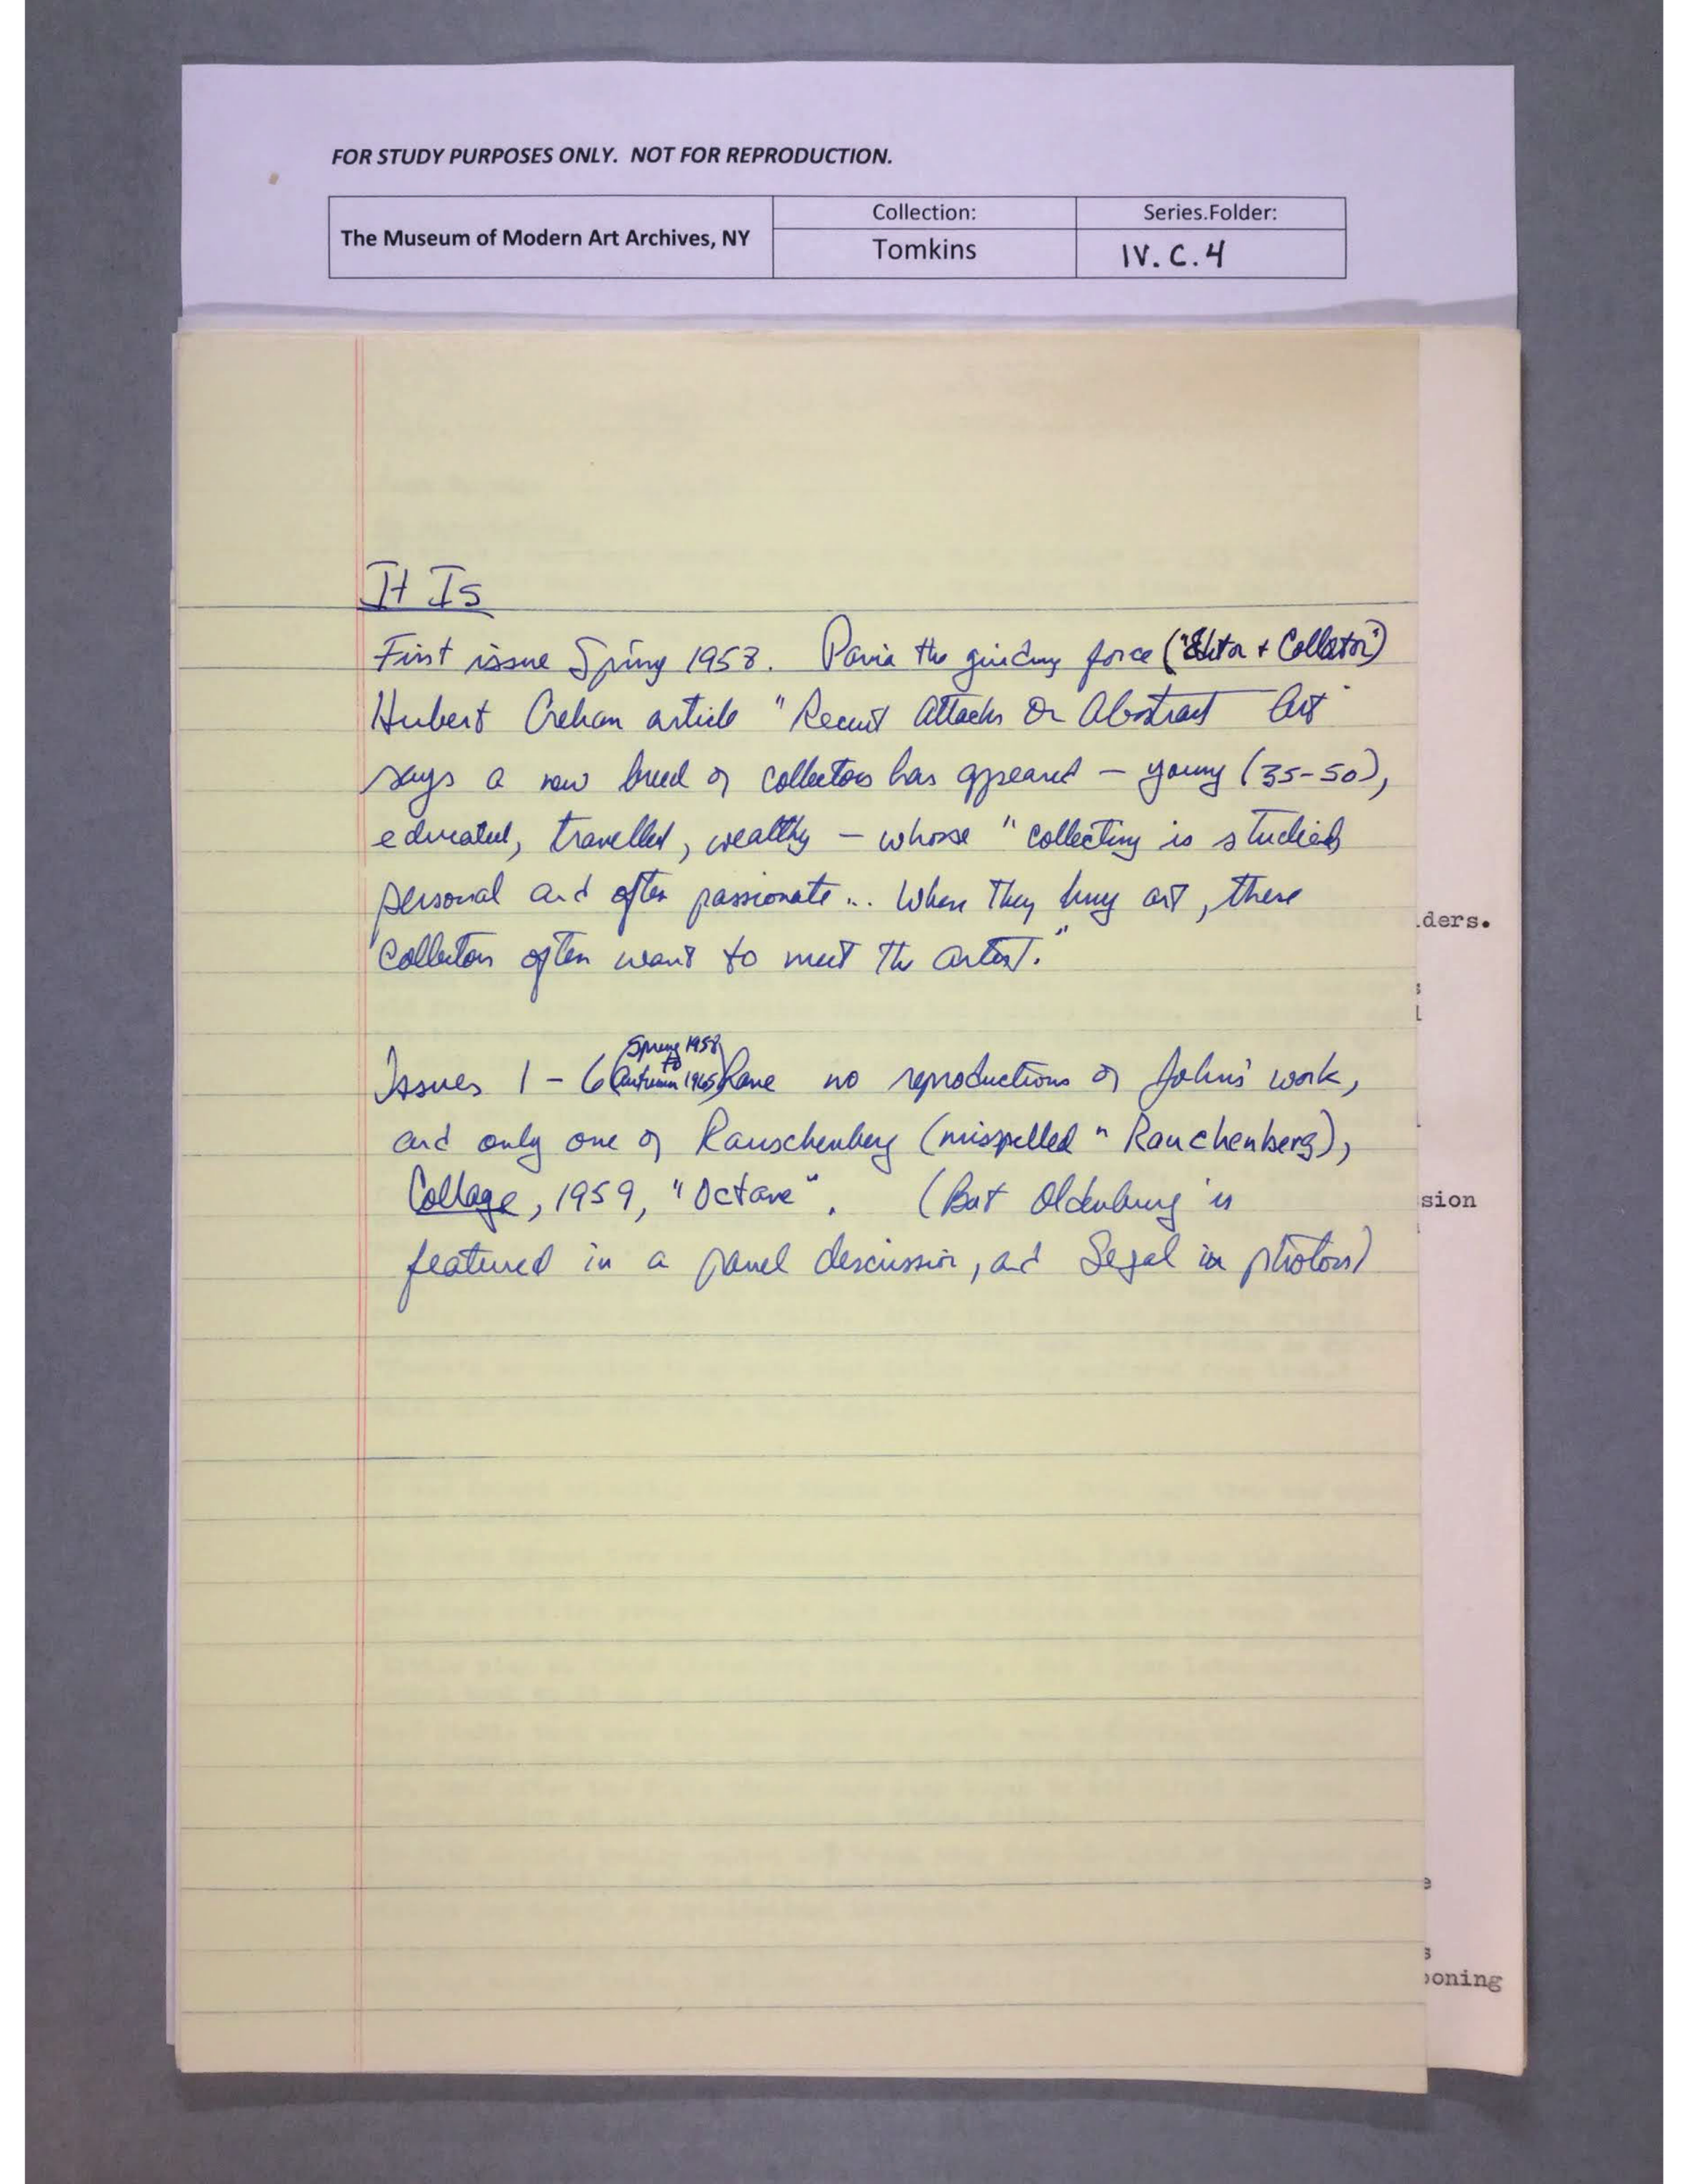 FOR STUDY PURPOSES ONLY. NOT FOR REPRODUCTION.
The Museum of Modern Art Archives, NY
Collection:
Series.Folder:
Tomkins
IV.C.4
It Is
First issue Spring 1958. Pavia the guiding force ("Editor + Collator")
Hubert Crehan article "Recent Attacks On Abstract Art"
says a new breed of collectors has appeared – young (35-50),
educated, travelled, wealthy – whose "collecting is studied,
personal and often passionate... When they buy art, these
collectors often want to meet the artist."
Issues 1 – 6 (Spring 1958 to Autumn 1965) have no reproductions of Johns' work,
and only one of Rauschenberg (misspelled "Rauchenberg),
Collage, 1959, "Octave". (But Oldenburg is
featured in a panel discussion, and Segal in photos)
ders.
sion
oning